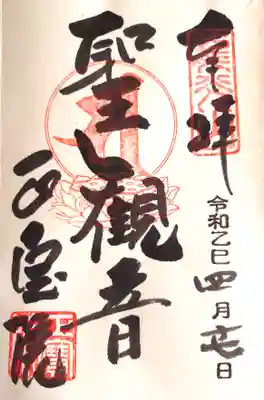 奉拝
令和乙巳四月廿七日
聖観音
正宝院